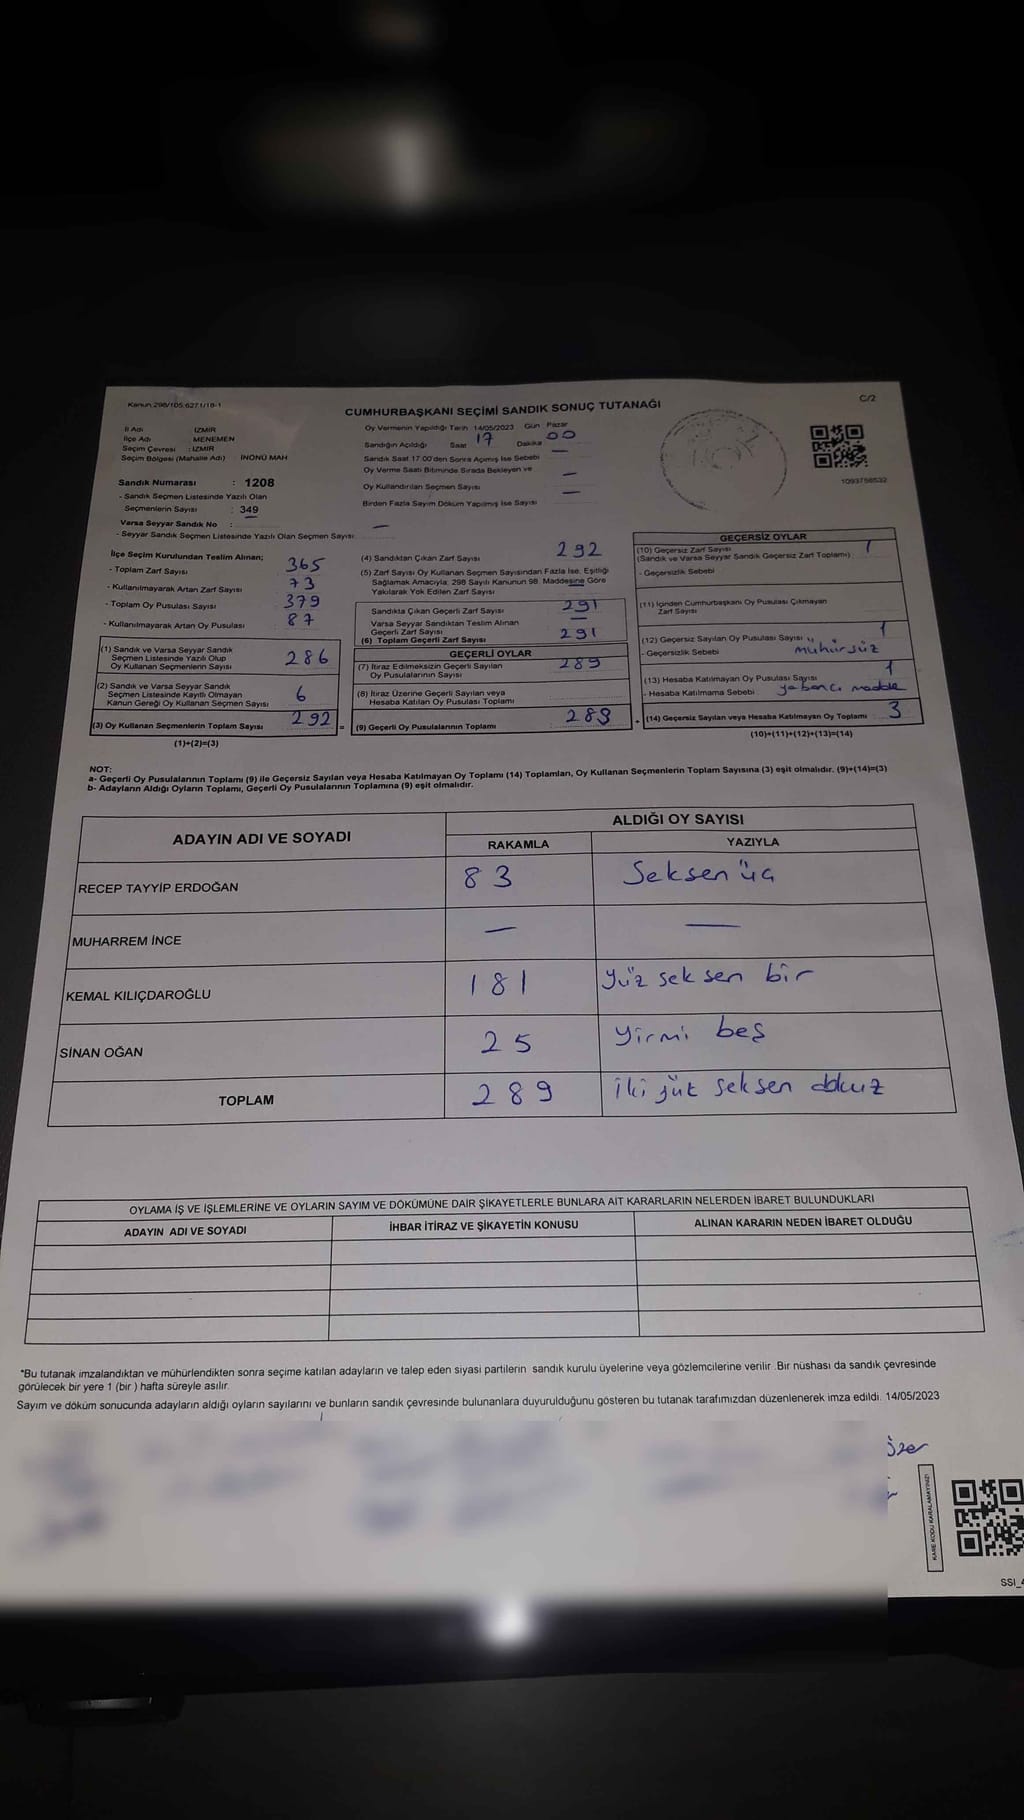 Kanun:298/105;6271/18-1
C/2
CUMHURBAŞKANI SEÇİMİ SANDIK SONUÇ TUTANAĞI
İl Adı : İZMİR
İlçe Adı : MENEMEN
Seçim Çevresi : İZMİR
Seçim Bölgesi (Mahalle Adı) İNÖNÜ MAH
Sandık Numarası : 1208
- Sandık Seçmen Listesinde Yazılı Olan
Seçmenlerin Sayısı : 349
Varsa Seyyar Sandık No :
- Seyyar Sandık Seçmen Listesinde Yazılı Olan Seçmen Sayısı: —
Oy Vermenin Yapıldığı Tarih 14/05/2023 Gün Pazar
Sandığın Açıldığı Saat 17 Dakika 00
Sandık Saat 17:00'den Sonra Açımış İse Sebebi —
Oy Verme Saati Bitiminde Sırada Bekleyen ve
Oy Kullandırılan Seçmen Sayısı —
Birden Fazla Sayım Döküm Yapılmış İse Sayısı —
1093756532
İlçe Seçim Kurulundan Teslim Alınan;
- Toplam Zarf Sayısı 365
- Kullanılmayarak Artan Zarf Sayısı 73
- Toplam Oy Pusulası Sayısı 379
- Kullanılmayarak Artan Oy Pusulası 87
(1) Sandık ve Varsa Seyyar Sandık
Seçmen Listesinde Yazılı Olup
Oy Kullanan Seçmenlerin Sayısı 286
(2) Sandık ve Varsa Seyyar Sandık
Seçmen Listesinde Kayıtlı Olmayan
Kanun Gereği Oy Kullanan Seçmen Sayısı 6
(3) Oy Kullanan Seçmenlerin Toplam Sayısı 292 =
(1)+(2)=(3)
(4) Sandıktan Çıkan Zarf Sayısı 292
(5) Zarf Sayısı Oy Kullanan Seçmen Sayısından Fazla İse, Eşitliği
Sağlamak Amacıyla; 298 Sayılı Kanunun 98. Maddesine Göre
Yakılarak Yok Edilen Zarf Sayısı —
Sandıkta Çıkan Geçerli Zarf Sayısı 291
Varsa Seyyar Sandıktan Teslim Alınan
Geçerli Zarf Sayısı —
(6) Toplam Geçerli Zarf Sayısı 291
GEÇERLİ OYLAR
(7) İtiraz Edilmeksizin Geçerli Sayılan
Oy Pusulalarının Sayısı 289
(8) İtiraz Üzerine Geçerli Sayılan veya
Hesaba Katılan Oy Pusulası Toplamı
(9) Geçerli Oy Pusulalarının Toplamı 289 +
GEÇERSİZ OYLAR
(10) Geçersiz Zarf Sayısı 1
(Sandık ve Varsa Seyyar Sandık Geçersiz Zarf Toplamı)
- Geçersizlik Sebebi
(11) İçinden Cumhurbaşkanı Oy Pusulası Çıkmayan
Zarf Sayısı
(12) Geçersiz Sayılan Oy Pusulası Sayısı 1
- Geçersizlik Sebebi mühürsüz
(13) Hesaba Katılmayan Oy Pusulası Sayısı 1
- Hesaba Katılmama Sebebi yabancı madde
(14) Geçersiz Sayılan veya Hesaba Katılmayan Oy Toplamı 3
(10)+(11)+(12)+(13)=(14)
NOT:
a- Geçerli Oy Pusulalarının Toplamı (9) ile Geçersiz Sayılan veya Hesaba Katılmayan Oy Toplamı (14) Toplamları, Oy Kullanan Seçmenlerin Toplam Sayısına (3) eşit olmalıdır. (9)+(14)=(3)
b- Adayların Aldığı Oyların Toplamı, Geçerli Oy Pusulalarının Toplamına (9) eşit olmalıdır.
ADAYIN ADI VE SOYADI ALDIĞI OY SAYISI
RAKAMLA YAZIYLA
RECEP TAYYİP ERDOĞAN 83 Seksen üç
MUHARREM İNCE — —
KEMAL KILIÇDAROĞLU 181 Yüz seksen bir
SİNAN OĞAN 25 Yirmi beş
TOPLAM 289 İki yüz seksen dokuz
OYLAMA İŞ VE İŞLEMLERİNE VE OYLARIN SAYIM VE DÖKÜMÜNE DAİR ŞİKAYETLERLE BUNLARA AİT KARARLARIN NELERDEN İBARET BULUNDUKLARI
ADAYIN ADI VE SOYADI İHBAR İTİRAZ VE ŞİKAYETİN KONUSU ALINAN KARARIN NEDEN İBARET OLDUĞU
*Bu tutanak imzalandıktan ve mühürlendikten sonra seçime katılan adayların ve talep eden siyasi partilerin sandık kurulu üyelerine veya gözlemcilerine verilir. Bir nüshası da sandık çevresinde
görülecek bir yere 1 (bir ) hafta süreyle asılır.
Sayım ve döküm sonucunda adayların aldığı oyların sayılarını ve bunların sandık çevresinde bulunanlara duyurulduğunu gösteren bu tutanak tarafımızdan düzenlenerek imza edildi. 14/05/2023
Özer
KARE KODU KARALAMAYINIZ!